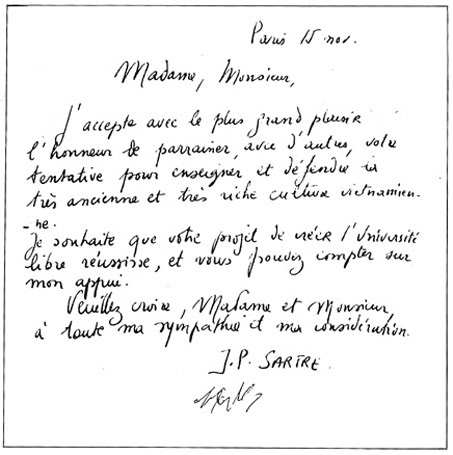 Paris 15 nov.
Madame, Monsieur,
J'accepte avec le plus grand plaisir
l'honneur de parrainer, avec d'autres, votre
tentative pour enseigner et défendre la
très ancienne et très riche culture vietnamien-
-ne.
Je souhaite que votre projet de créer l'Université
libre réussisse, et vous pouvez compter sur
mon appui.
Veuillez croire, Madame et Monsieur,
à toute ma sympathie et ma considération.
J.P. SARTRE.